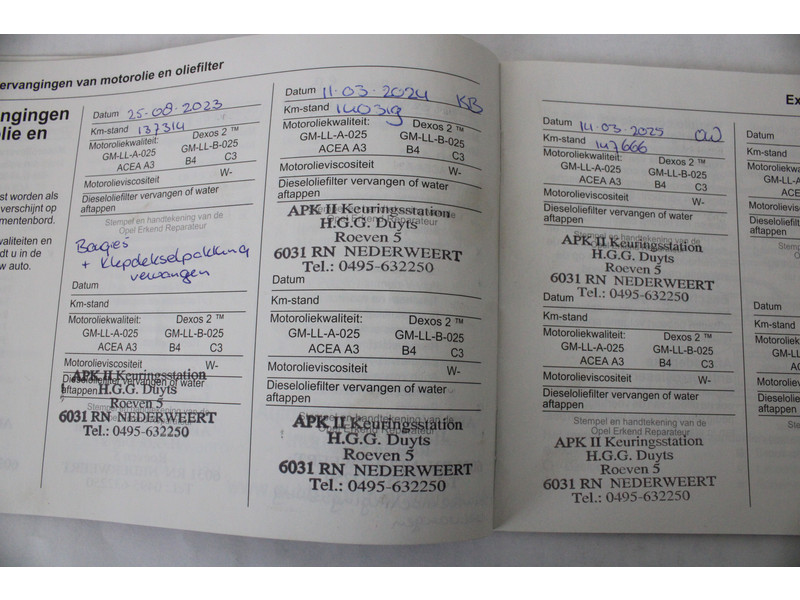 ervangingen van motorolie en oliefilter
ngingen
olie en
st worden als
verschijnt op
mentenbord.
valiteiten en
dt u in de
w auto.
Datum 25-08-2023
Km-stand 137314
Motoroliekwaliteit: Dexos 2 ™
GM-LL-A-025 GM-LL-B-025
ACEA A3 B4 C3
Motorolieviscositeit W-
Dieseloliefilter vervangen of water
aftappen
Stempel en handtekening van de
Opel Erkend Reparateur
Bougies
+ Klepdekselpakking
vervangen
Datum
Km-stand
Motoroliekwaliteit: Dexos 2 ™
GM-LL-A-025 GM-LL-B-025
ACEA A3 B4 C3
Motorolieviscositeit W-
Dieseloliefilter vervangen of water
aftappen
Stempel en handtekening van de
Opel Erkend Reparateur
APK II Keuringsstation
H.G.G. Duyts
Roeven 5
6031 RN NEDERWEERT
Tel.: 0495-632250
Datum 11-03-2024 KB
Km-stand 140319
Motoroliekwaliteit: Dexos 2 ™
GM-LL-A-025 GM-LL-B-025
ACEA A3 B4 C3
Motorolieviscositeit W-
Dieseloliefilter vervangen of water
aftappen
Stempel en handtekening van de
Opel Erkend Reparateur
APK II Keuringsstation
H.G.G. Duyts
Roeven 5
6031 RN NEDERWEERT
Tel.: 0495-632250
Datum
Km-stand
Motoroliekwaliteit: Dexos 2 ™
GM-LL-A-025 GM-LL-B-025
ACEA A3 B4 C3
Motorolieviscositeit W-
Dieseloliefilter vervangen of water
aftappen
Stempel en handtekening van de
Opel Erkend Reparateur
APK II Keuringsstation
H.G.G. Duyts
Roeven 5
6031 RN NEDERWEERT
Tel.: 0495-632250
Ex
Datum 14-03-2025
Km-stand 147666
Motoroliekwaliteit: Dexos 2 ™
GM-LL-A-025 GM-LL-B-025
ACEA A3 B4 C3
Motorolieviscositeit W-
Dieseloliefilter vervangen of water
aftappen
Stempel en handtekening van de
Opel Erkend Reparateur
APK II Keuringsstation
H.G.G. Duyts
Roeven 5
6031 RN NEDERWEERT
Tel.: 0495-632250
Datum
Km-stand
Motoroliekwaliteit: Dexos 2 ™
GM-LL-A-025 GM-LL-B-025
ACEA A3 B4 C3
Motorolieviscositeit W-
Dieseloliefilter vervangen of water
aftappen
Stempel en handtekening van de
Opel Erkend Reparateur
APK II Keuringsstation
H.G.G. Duyts
Roeven 5
6031 RN NEDERWEERT
Tel.: 0495-632250
Datum
Km-stand
Motoroliekwa
GM-LL-A
ACEA
Motorolievisc
Dieseloliefilte
aftappen
Datum
Km-stand
Motoroliekwa
GM-LL-A
ACEA
Motorolievis
Dieseloliefilt
aftappen